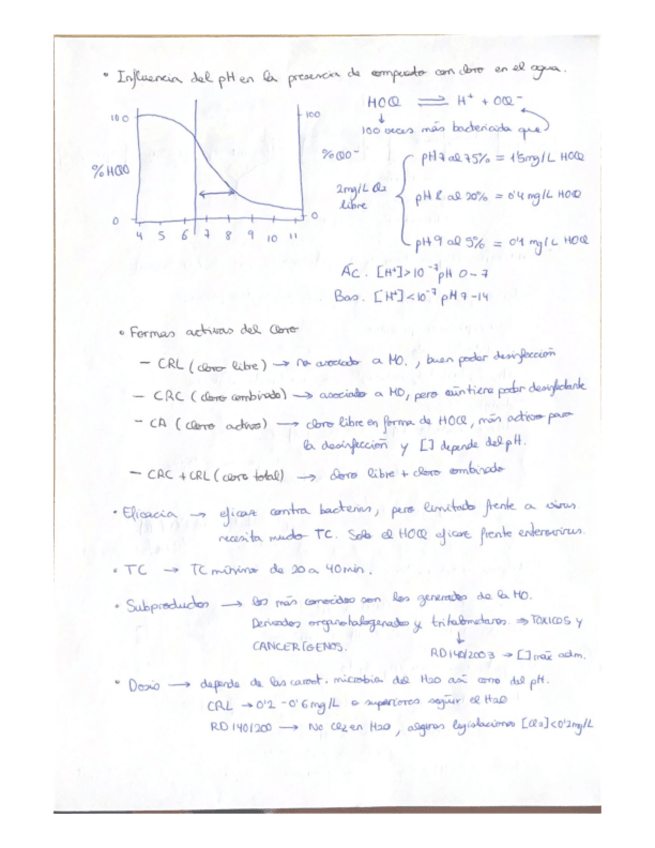 • Influencia del pH en la presencia de compuesto con cloro en el agua.
HOCl ⇌ H⁺ + OCl⁻
100 veces más bactericida que
100
100
%HClO
%ClO⁻
0
0
4 5 6 7 8 9 10 11
2mg/L Cl₂ libre
pH 7 al 75% = 1'5mg/L HOCl
pH 8 al 20% = 0'4 mg/L HOCl
pH 9 al 5% = 0'1 mg/L HOCl
Ác. [H⁺]>10⁻⁷ pH 0-7
Bas. [H⁺]<10⁻⁷ pH 7-14
• Formas activas del cloro
- CRL (cloro libre) → no asociado a MO., buen poder desinfección
- CRC (cloro combinado) → asociado a MO, pero aún tiene poder desinfectante
- CA (cloro activo) → cloro libre en forma de HOCl, más activo para
la desinfección y [] depende del pH.
- CRC + CRL (cloro total) → cloro libre + cloro combinado
• Eficacia → eficaz contra bacterias, pero limitado frente a virus
necesita mucho TC. Solo el HOCl eficaz frente enterovirus.
• TC → TC mínimo de 20 a 40 min.
• Subproductos → los más conocidos son los generados de la MO.
Derivados organohalogenados y trihalometanos. ⇒ TÓXICOS y
CANCERÍGENOS.
RD 140/2003 → [] máx adm.
• Dosis → depende de las caract. microbia del H2O así como del pH.
CRL → 0'2 - 0'6 mg/L o superiores según el H2O
RD 140/200 → No Cl₂ en H2O, algunas legislaciones [Cl₂]<0'2mg/L